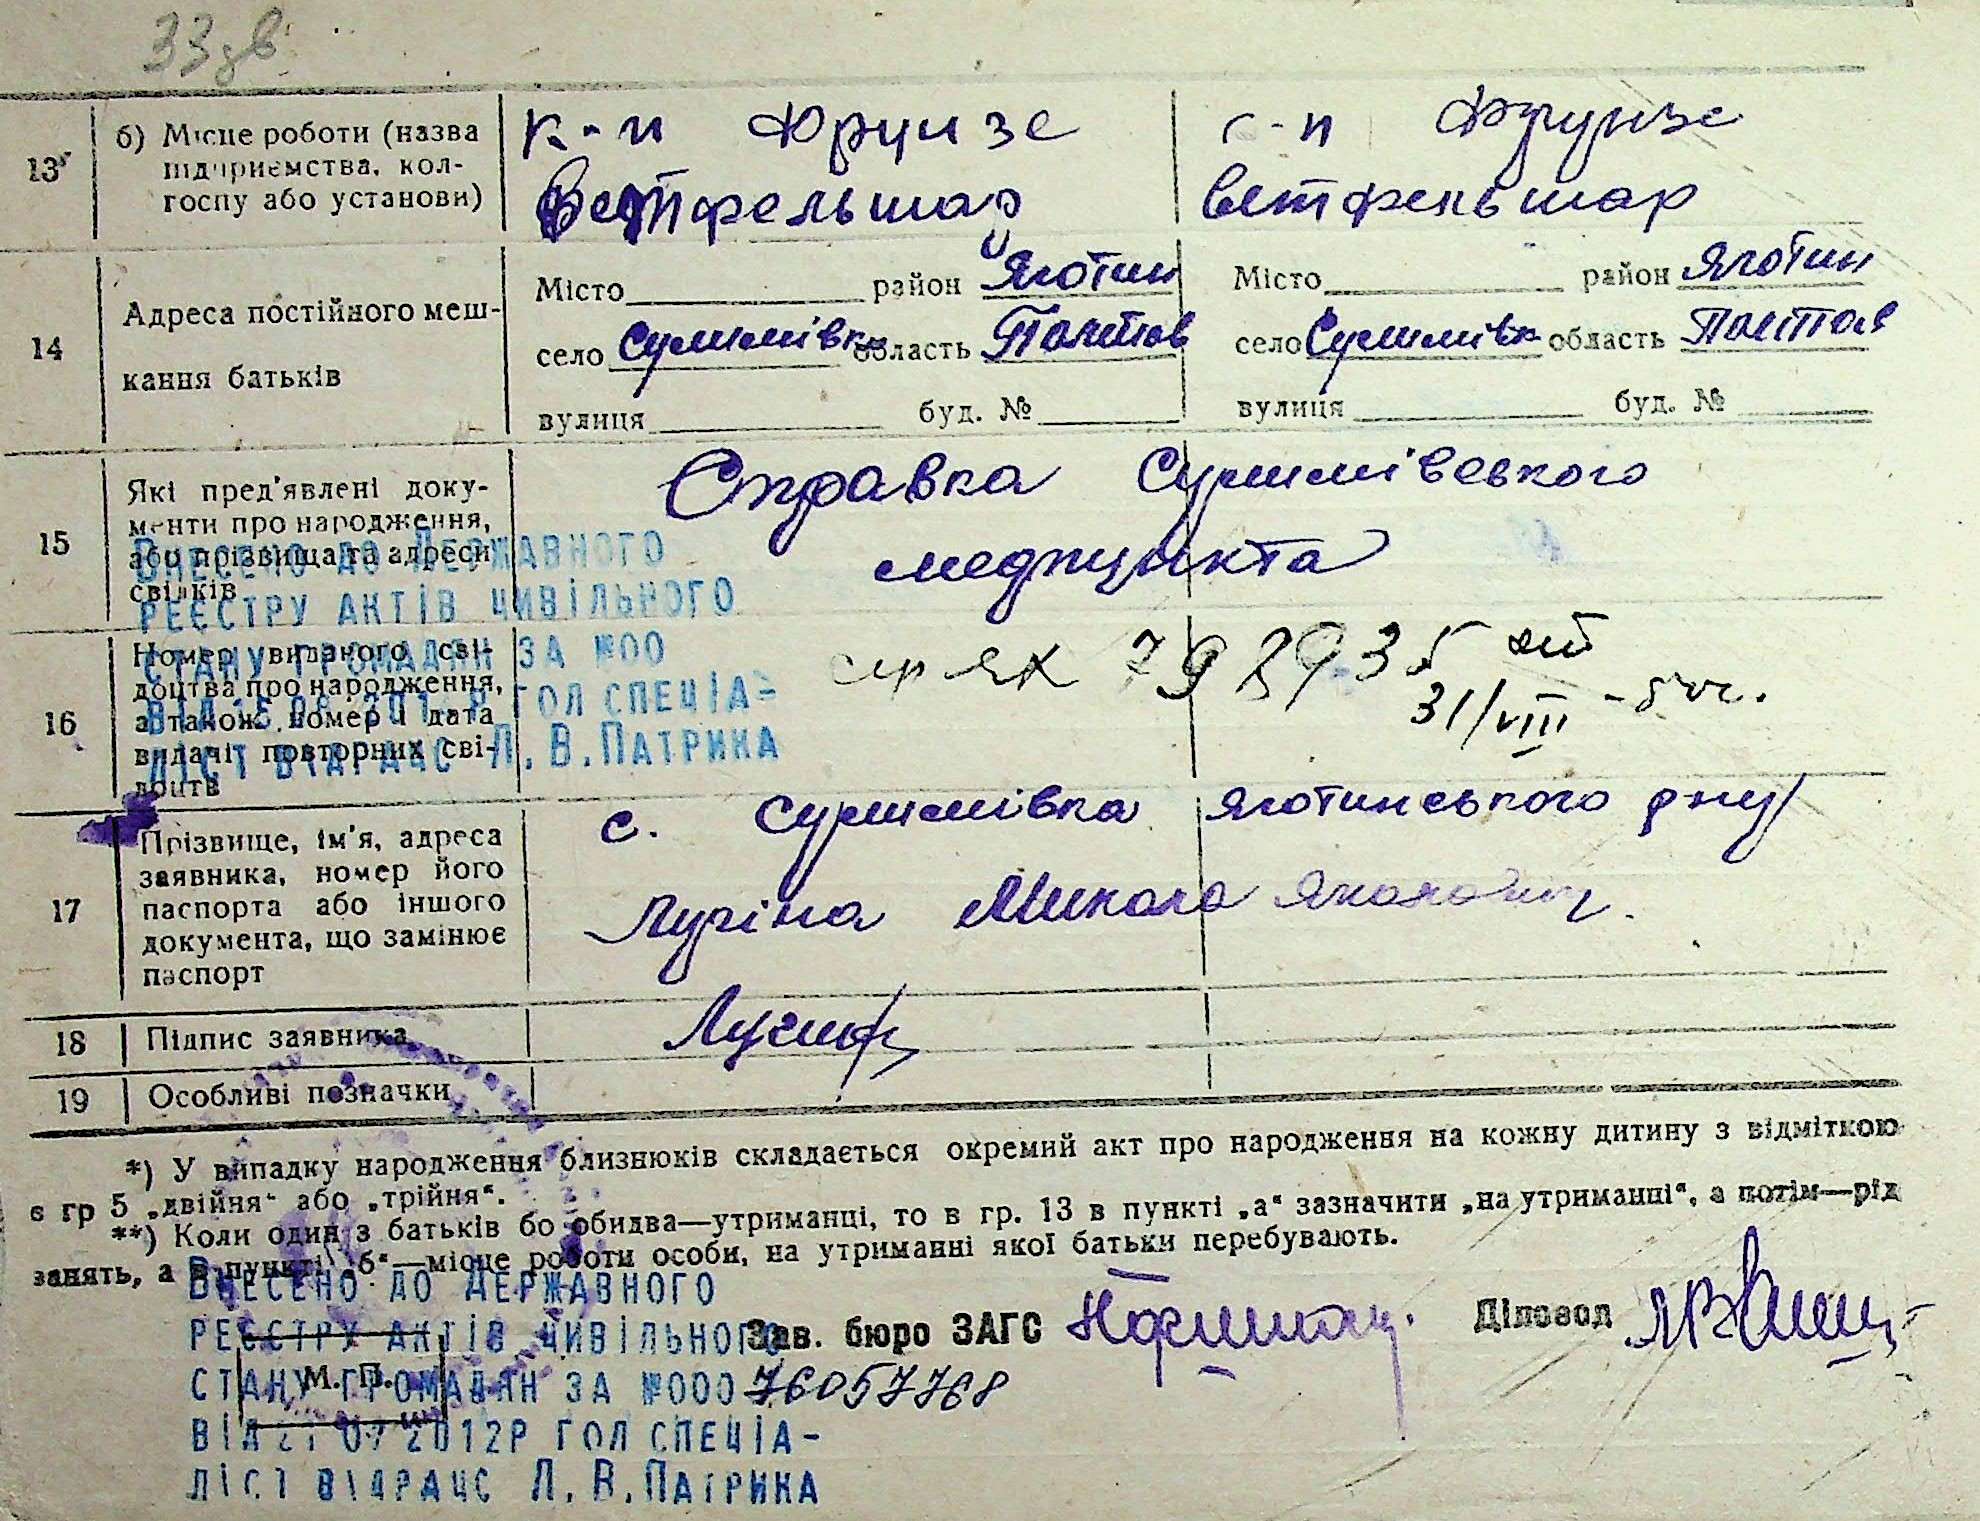 33
13 б) Місце роботи (назва підприємства, колгоспу або установи)
к-п Фрунзе
Ветфельшар
к-п Фрунзе
ветфельшар
14 Адреса постійного мешкання батьків
Місто район Яготин
село Сулимівка область Полтав
вулиця буд. №
Місто район Яготин
село Сулимівк область Полтав
вулиця буд. №
15 Які пред'явлені документи про народження, або прізвища та адреси свідків
Справка Сулимівського
медпункта
16 Номер виданого свідоцтва про народження, а також номер і дата видачі повторних свідоцтв
ср ЯК 798935 от
31/VIII
Внесено до Державного
реєстру актів цивільного
стану громадян за №00
гол спеціа-
ліст ВідРАЦС Л.В.Патрика
17 Прізвище, ім'я, адреса заявника, номер його паспорта або іншого документа, що замінює паспорт
с. Сулимівка Яготинського р-ну
Микола
18 Підпис заявника
19 Особливі позначки
*) У випадку народження близнюків складається окремий акт про народження на кожну дитину з відміткою
в гр 5 „двійня“ або „трійня“.
**) Коли один з батьків бо обидва—утриманці, то в гр. 13 в пункті „а“ зазначити „на утриманні“, а потім—рід
занять, а в пункті „б“—місце роботи особи, на утриманні якої батьки перебувають.
Зав. бюро ЗАГС
Діловод
М. П.
Внесено до Державного
реєстру актів цивільного
стану громадян за №000 76057768
від 21 07 2012р гол спеціа-
ліст ВідРАЦС Л.В.Патрика